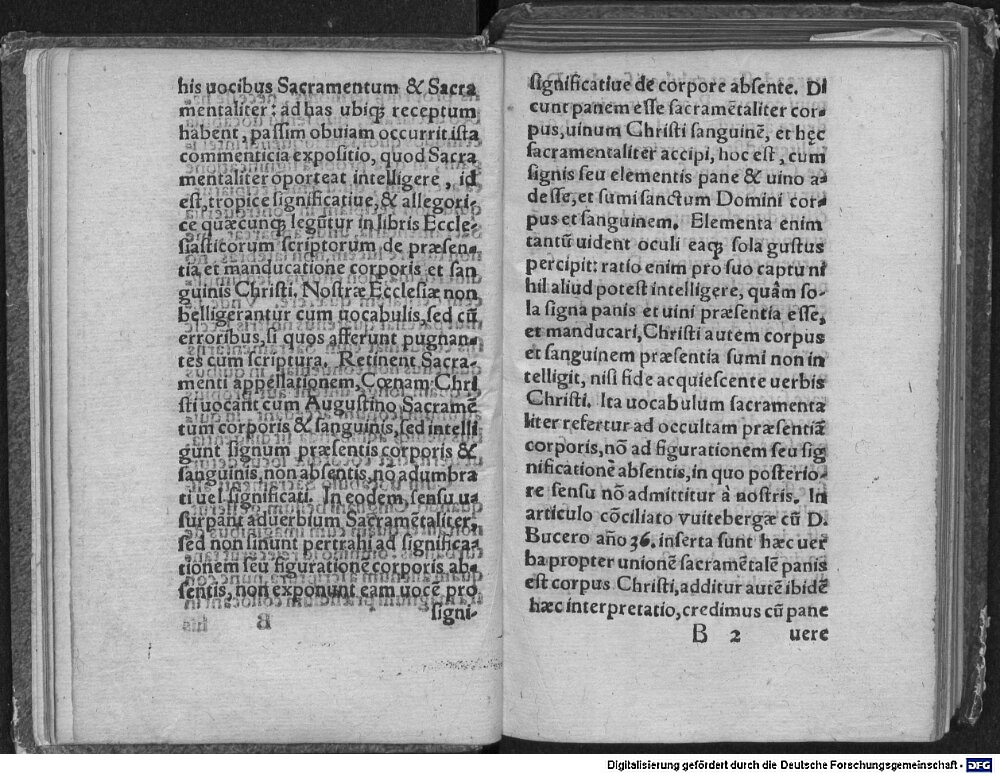 his uocibus Sacramentum & Sacra
mentaliter: ad has ubiqꝫ receptum
habent, paſſim obuiam occurrit iſta
commenticia expoſitio, quod Sacra
mentaliter oporteat intelligere, id
eſt, tropice ſignificatiue, & allegori-
ce quæcunqꝫ legũtur in libris Eccle-
ſiaſticorum ſcriptorum de præſen-
tia et manducatione corporis et ſan
guinis Chriſti. Noſtræ Eccleſiæ non
belligerantur cum uocabulis, ſed cũ
erroribus, ſi quos afferunt pugnan-
tes cum ſcriptura. Retinent Sacra-
menti appellationem, Cœnam Chri
ſti uocant cum Auguſtino Sacramẽ
tum corporis & ſanguinis, ſed intelli
gunt ſignum præſentis corporis &
ſanguinis, non abſentis, nõ adumbra
ti uel ſignificati. In eodem, ſenſu u-
ſurpant aduerbium Sacramẽtaliter,
ſed non ſinunt pertrahi ad ſignifica-
tionem ſeu figurationẽ corporis ab-
ſentis, non exponunt eam uocẽ pro
ſigni-
ſignificatiue de corpore abſente. Di
cunt panem eſſe ſacramẽtaliter cor-
pus, uinum Chriſti ſanguinẽ, et hęc
ſacramentaliter accipi, hoc eſt, cum
ſignis ſeu elementis pane & uino a-
deſſe, et ſumi ſanctum Domini cor-
pus et ſanguinem. Elementa enim
tantũ uident oculi eaqꝫ ſola guſtus
percipit: ratio enim pro ſuo captu ni
hil aliud poteſt intelligere, quâm ſo-
la ſigna panis et uini præſentia eſſe,
et manducari, Chriſti autem corpus
et ſanguinem præſentia ſumi non in
telligit, niſi fide acquieſcente uerbis
Chriſti. Ita uocabulum ſacramenta
liter refertur ad occultam præſentiã
corporis, nõ ad figurationem ſeu ſig
nificationẽ abſentis, in quo poſterio-
re ſenſu nõ admittitur à noſtris. In
articulo cõciliato vuitebergæ cũ D.
Bucero año 36. inſerta ſunt hæc uer
ba propter unionẽ ſacramẽtalẽ panis
eſt corpus Chriſti, additur autẽ ibidẽ
hæc interpretatio, credimus cũ pane
B 2 uere
Digitalisierung gefördert durch die Deutsche Forschungsgemeinschaft - DFG